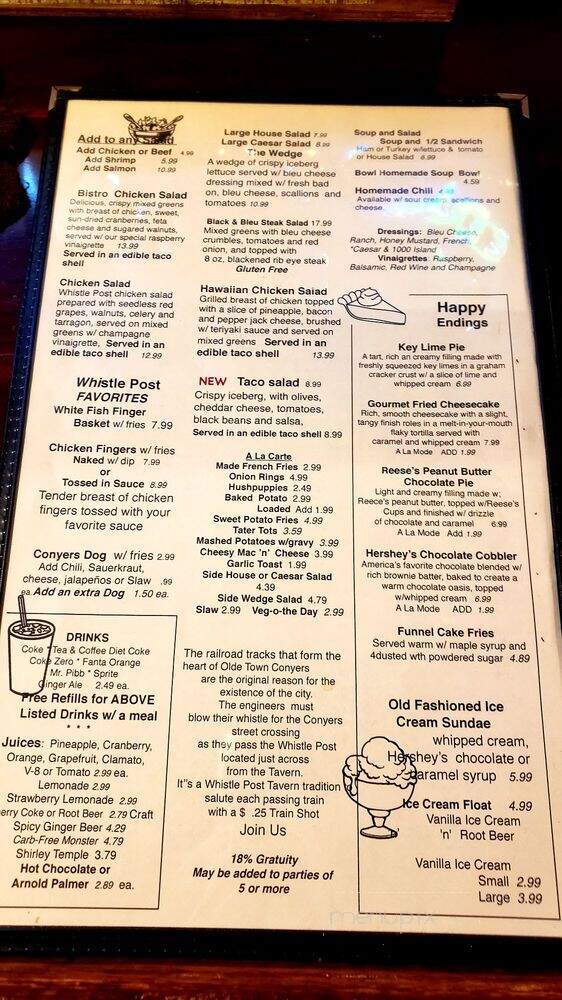 Add to any Salad
Add Chicken or Beef 4.99
Add Shrimp 5.99
Add Salmon 10.99
Bistro Chicken Salad
Delicious, crispy mixed greens
with breast of chicken, sweet,
sun-dried cranberries, feta
cheese and sugared walnuts,
served w/ our special raspberry
vinaigrette 13.99
Served in an edible taco
shell
Chicken Salad
Whistle Post chicken salad
prepared with seedless red
grapes, walnuts, celery and
tarragon, served on mixed
greens w/ champagne
vinaigrette, Served in an
edible taco shell 12.99
Whistle Post
FAVORITES
White Fish Finger
Basket w/ fries 7.99
Chicken Fingers w/ fries
Naked w/ dip 7.99
or
Tossed in Sauce 8.99
Tender breast of chicken
fingers tossed with your
favorite sauce
Conyers Dog w/ fries 2.99
Add Chili, Sauerkraut,
cheese, jalapeños or Slaw .99
ea. Add an extra Dog 1.50 ea.
DRINKS
Coke * Tea & Coffee Diet Coke
Coke Zero * Fanta Orange
Mr. Pibb * Sprite
Ginger Ale 2.49 ea.
Free Refills for ABOVE
Listed Drinks w/ a meal
* * *
Juices: Pineapple, Cranberry,
Orange, Grapefruit, Clamato,
V-8 or Tomato 2.99 ea.
Lemonade 2.99
Strawberry Lemonade 2.99
erry Coke or Root Beer 2.79 Craft
Spicy Ginger Beer 4.29
Carb-Free Monster 4.79
Shirley Temple 3.79
Hot Chocolate or
Arnold Palmer 2.89 ea.
Large House Salad 7.99
Large Caesar Salad 8.99
The Wedge
A wedge of crispy iceberg
lettuce served w/ bleu cheese
dressing mixed w/ fresh bad
on, bleu cheese, scallions and
tomatoes 10.99
Black & Bleu Steak Salad 17.99
Mixed greens with bleu cheese
crumbles, tomatoes and red
onion, and topped with
8 oz, blackened rib eye steak
Gluten Free
Hawaiian Chicken Salad
Grilled breast of chicken topped
with a slice of pineapple, bacon
and pepper jack cheese, brushed
w/ teriyaki sauce and served on
mixed greens Served in an
edible taco shell 13.99
NEW Taco salad 8.99
Crispy iceberg, with olives,
cheddar cheese, tomatoes,
black beans and salsa,
Served in an edible taco shell 8.99
A La Carte
Made French Fries 2.99
Onion Rings 4.99
Hushpuppies 2.49
Baked Potato 2.99
Loaded Add 1.99
Sweet Potato Fries 4.99
Tater Tots 3.59
Mashed Potatoes w/gravy 3.99
Cheesy Mac 'n' Cheese 3.99
Garlic Toast 1.99
Side House or Caesar Salad
4.39
Side Wedge Salad 4.79
Slaw 2.99 Veg-o-the Day 2.99
The railroad tracks that form the
heart of Olde Town Conyers
are the original reason for the
existence of the city.
The engineers must
blow their whistle for the Conyers
street crossing
as they pass the Whistle Post
located just across
from the Tavern.
It"s a Whistle Post Tavern tradition
salute each passing train
with a $ .25 Train Shot
Join Us
18% Gratuity
May be added to parties of
5 or more
Soup and Salad
Soup and 1/2 Sandwich
Ham or Turkey w/lettuce & tomato
or House Salad 8.99
Bowl Homemade Soup Bowl
4.59
Homemade Chili
Available w/ sour cream, scallions and
cheese.
Dressings: Bleu Cheese,
Ranch, Honey Mustard, French,
*Caesar & 1000 Island
Vinaigrettes: Raspberry,
Balsamic, Red Wine and Champagne
Happy
Endings
Key Lime Pie
A tart, rich an creamy filling made with
freshly squeezed key limes in a graham
cracker crust w/ a slice of lime and
whipped cream 6.99
Gourmet Fried Cheesecake
Rich, smooth cheesecake with a slight,
tangy finish roles in a melt-in-your-mouth
flaky tortilla served with
caramel and whipped cream 7.99
A La Mode ADD 1.99
Reese's Peanut Butter
Chocolate Pie
Light and creamy filling made w;
Reece's peanut butter, topped w/Reese's
Cups and finished w/ drizzle
of chocolate and caramel 6.99
A La Mode Add 1.99
Hershey's Chocolate Cobbler
America's favorite chocolate blended w/
rich brownie batter, baked to create a
warm chocolate oasis, topped
w/whipped cream 6.99
A La Mode ADD 1.99
Funnel Cake Fries
Served warm w/ maple syrup and
4dusted wth powdered sugar 4.89
Old Fashioned Ice
Cream Sundae
whipped cream,
Hershey's chocolate or
caramel syrup 5.99
Ice Cream Float 4.99
Vanilla Ice Cream
'n' Root Beer
Vanilla Ice Cream
Small 2.99
Large 3.99
menupix